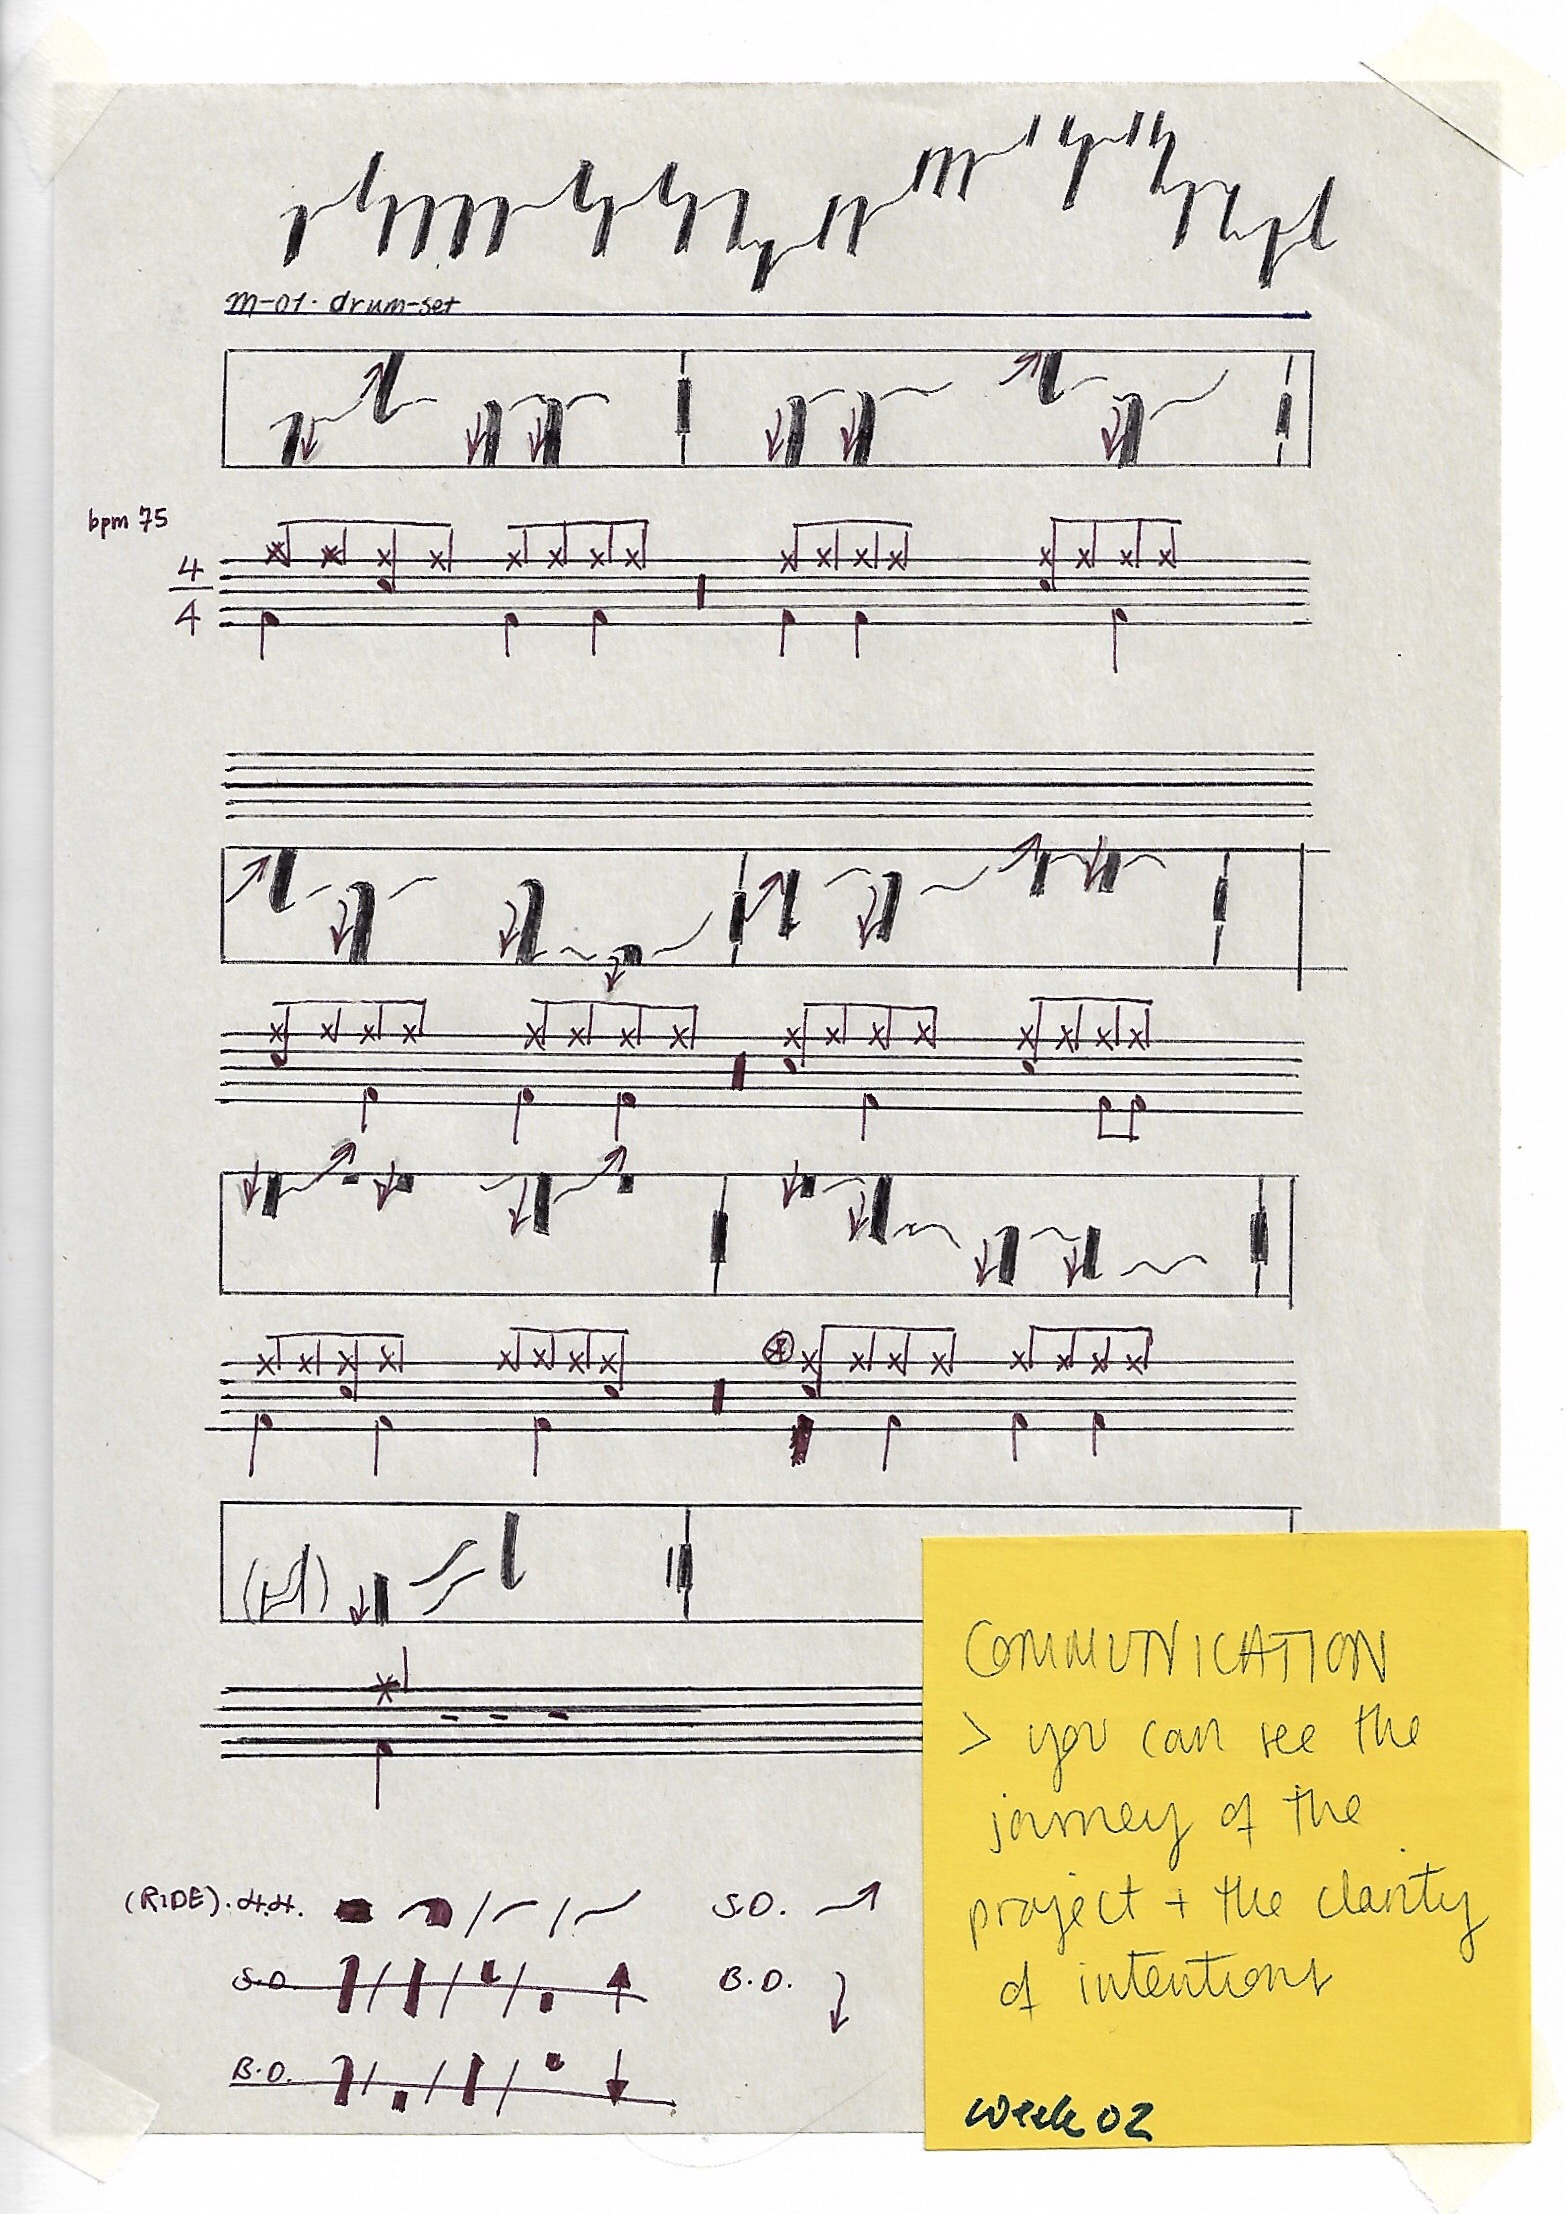 m-01. drum-set
bpm 75
4
4
(RIDE). H.H.
S.D.
S.D.
B.D.
B.D.
COMMUNICATION
> you can see the
journey of the
project + the clarity
of intentions
week 02